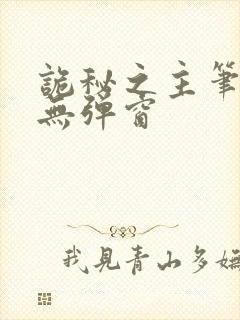 詭秘之主筆
無彈窗
我見青山多嫵